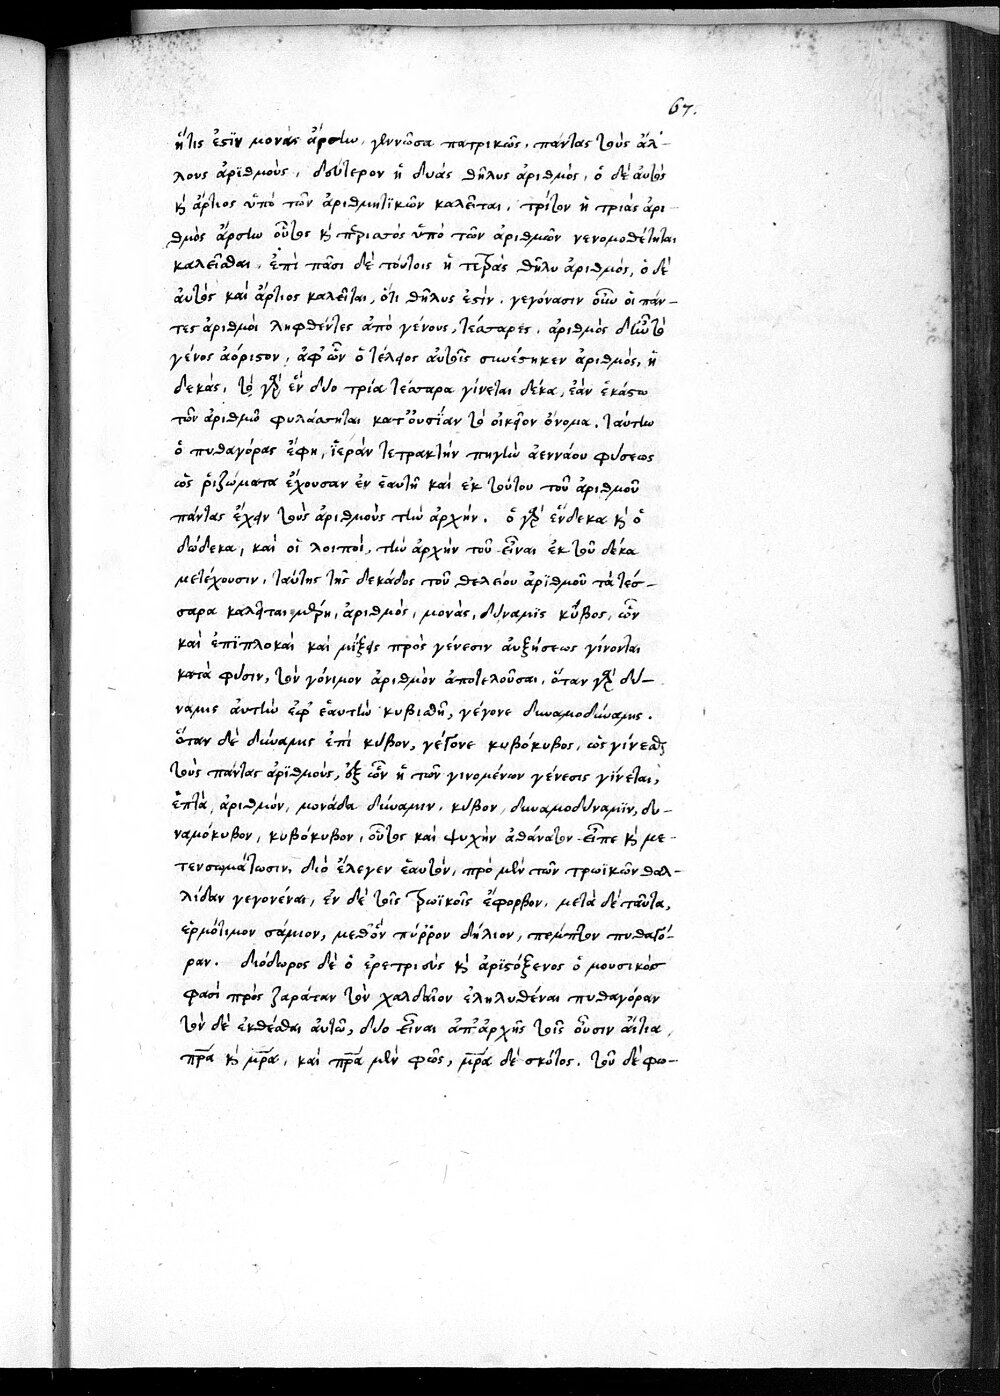 67.
ἥτις ἐστὶν μονὰς ἄρσην, γεννῶσα πατρικῶς, πάντας τοὺς ἄλ-
λους ἀριθμούς, δεύτερον ἡ δυὰς θῆλυς ἀριθμὸς, ὁ δὲ αὐτὸς
κὶ ἄρτιος ὑπὸ τῶν ἀριθμητικῶν καλεῖται, τρίτον ἡ τριὰς ἀρι-
θμὸς ἄρσην οὗτος κὶ περισσὸς ὑπὸ τῶν ἀριθμῶν νενομοθέτηται
καλεῖσθαι, ἐπὶ πᾶσι δὲ τούτοις ἡ τετρὰς θῆλυ ἀριθμὸς, ὁ δὲ
αὐτὸς καὶ ἄρτιος καλεῖται, ὅτι θῆλυς ἐστίν. γεγόνασιν οὖν οἱ πάν-
τες ἀριθμοὶ ληφθέντες ἀπὸ γένους, τέσσαρες, ἀριθμὸς δ' ἦν τὸ
γένος ἀόριστον, ἀφ' ὧν ὁ τέλειος αὐτοῖς συνέστηκεν ἀριθμὸς, ἡ
δεκὰς, τὸ γὰρ ἓν δυο τρία τέσσαρα γίνεται δέκα, ἐὰν ἑκάστω
τῶν ἀριθμῶ φυλάσσηται κατ' οὐσίαν τὸ οἰκεῖον ὄνομα. ταύτην
ὁ πυθαγόρας ἔφη, ἱερὰν τετρακτὴν πηγὴν ἀεννάου φύσεως
ὡς ῥιζώματα ἔχουσαν ἐν ἑαυτῇ καὶ ἐκ τούτου τοῦ ἀριθμοῦ
πάντας ἔχειν τοὺς ἀριθμοὺς τὴν ἀρχήν. ὁ γὰρ ἕνδεκα κὶ ὁ
δώδεκα, καὶ οἱ λοιποὶ, τὴν ἀρχὴν τοῦ εἶναι ἐκ τοῦ δέκα
μετέχουσιν, ταύτης τῆς δεκάδος τοῦ θελείου ἀριθμοῦ τὰ τέσ-
σαρα καλεῖται μέρη, ἀριθμὸς, μονὰς, δύναμις κύβος, ὧν
καὶ ἐπιπλοκαὶ καὶ μίξεις πρὸς γένεσιν αὐξήσεως γίνονται
κατὰ φύσιν, τὸν γόνιμον ἀριθμὸν ἀποτελοῦσαι, ὅταν γὰρ δύ-
ναμις αὐτὴν ἐφ' ἑαυτὴν κυβισθῇ, γέγονε δυναμοδύναμις.
ὅταν δὲ δύναμις ἐπὶ κύβον, γέγονε κυβόκυβος, ὡς γίνεσθαι
τοὺς πάντας ἀριθμούς, ἐξ ὧν ἡ τῶν γινομένων γένεσις γίνεται,
ἑπτὰ, ἀριθμὸν, μονάδα δύναμιν, κύβον, δυναμοδύναμιν, δυ-
ναμόκυβον, κυβόκυβον, οὗτος καὶ ψυχὴν ἀθάνατον εἶπε κὶ με-
τενσωμάτωσιν, διὸ ἔλεγεν ἑαυτὸν, πρὸ μὲν τῶν τρωϊκῶν θαλ-
λίδαν γεγονέναι, ἐν δὲ τοῖς τρωϊκοῖς ἔφορβον, μετὰ δὲ ταῦτα,
ἑρμότιμον σάμιον, μεθ' ὃν πύρρον δήλιον, πέμπτον πυθαγό-
ραν. διόδωρος δὲ ὁ ἐρετριεὺς κὶ ἀριστόξενος ὁ μουσικὸς
φασὶ πρὸς ζαράταν τὸν χαλδαῖον ἐληλυθέναι πυθαγόραν
τὸν δὲ ἐκθέσθαι αὐτῶ, δύο εἶναι ἀπ' ἀρχῆς τοῖς οὖσιν αἴτια,
πρα κὶ μρα, καὶ πρα μὲν φῶς, μρα δὲ σκότος. τοῦ δὲ φω-